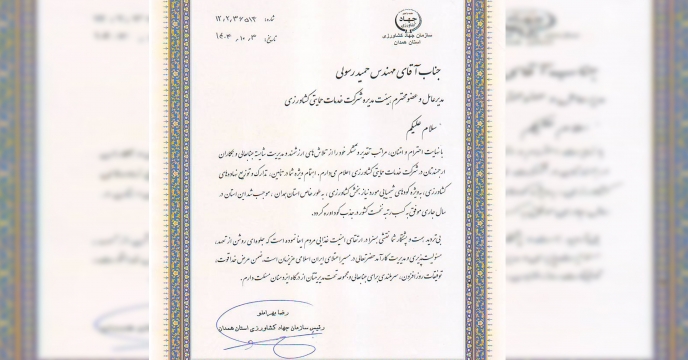 جهاد
کشاورزی
سازمان جهاد کشاورزی
استان همدان
شماره: ۱۲,۲,۳۶۵۱۲
تاریخ: ۱۴۰۳,۱۰,۳
جناب آقای مهندس حمید رسولی
مدیرعامل و عضو محترم هیئت مدیره شرکت خدمات حمایتی کشاورزی
سلام علیکم
با نهایت احترام و امتنان، مراتب تقدیر و تشکر خود را از تلاش‌های ارزشمند و مدیریت شایسته جنابعالی و همکاران
ارجمندتان در شرکت خدمات حمایتی کشاورزی اعلام می‌دارم. اهتمام ویژه شما در تأمین، تدارک و توزیع نهاده‌های
کشاورزی، به‌ویژه کودهای شیمیایی مورد نیاز بخش کشاورزی، به‌طور خاص استان همدان، موجب شد این استان در
سال جاری موفق به کسب رتبه نخست کشور در جذب کود اوره گردد.
بی‌تردید همت و پشتکار شما نقشی بسزا در ارتقای امنیت غذایی مردم ایفا نموده است که جلوه‌ای روشن از تعهد،
مسئولیت‌پذیری و مدیریت کارآمد حضرتعالی در مسیر اعتلای ایران اسلامی عزیزمان است. ضمن عرض خداقوت،
توفیقات روزافزون، سربلندی برای جنابعالی و مجموعه تحت مدیریتتان از درگاه ایزد منان مسئلت دارم.
رضا بهراملو
رئیس سازمان جهاد کشاورزی استان همدان